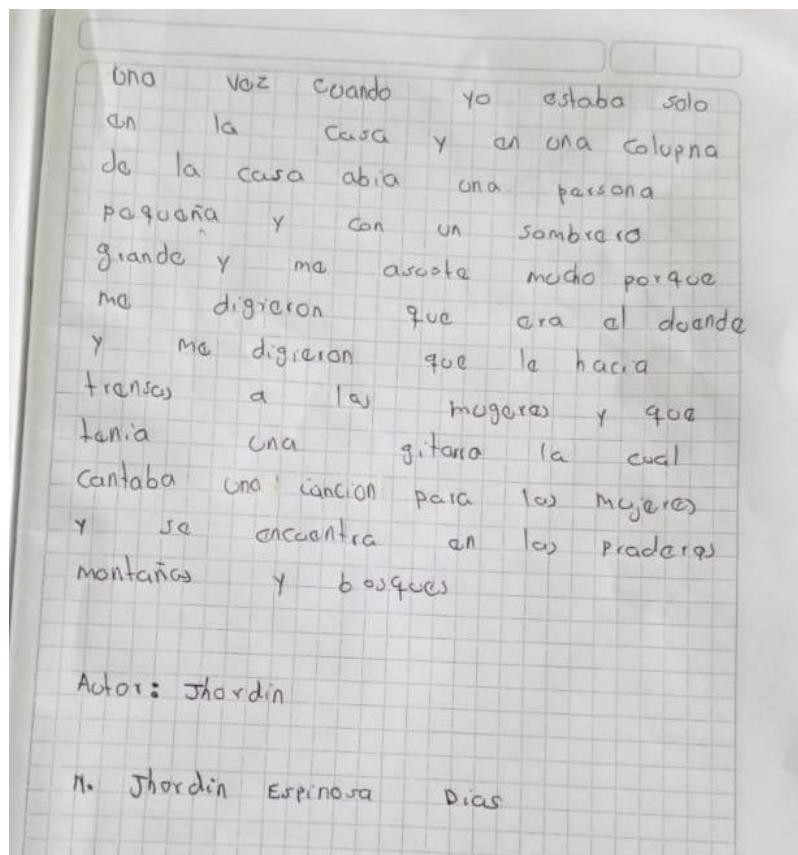 Una vez cuando yo estaba solo
en la casa y en una colupna
de la casa abia una persona
pequeña y con un sombrero
grande y me asoste mucho porque
me digieron que era el duende
y me digieron que le hacia
trensas a las mugeres y que
tenia una gitarra la cual
cantaba una cancion para las mujeres
y se encuentra en las praderas
montañas y bosques
Autor: Jhordin
N. Jhordin Espinosa Dias